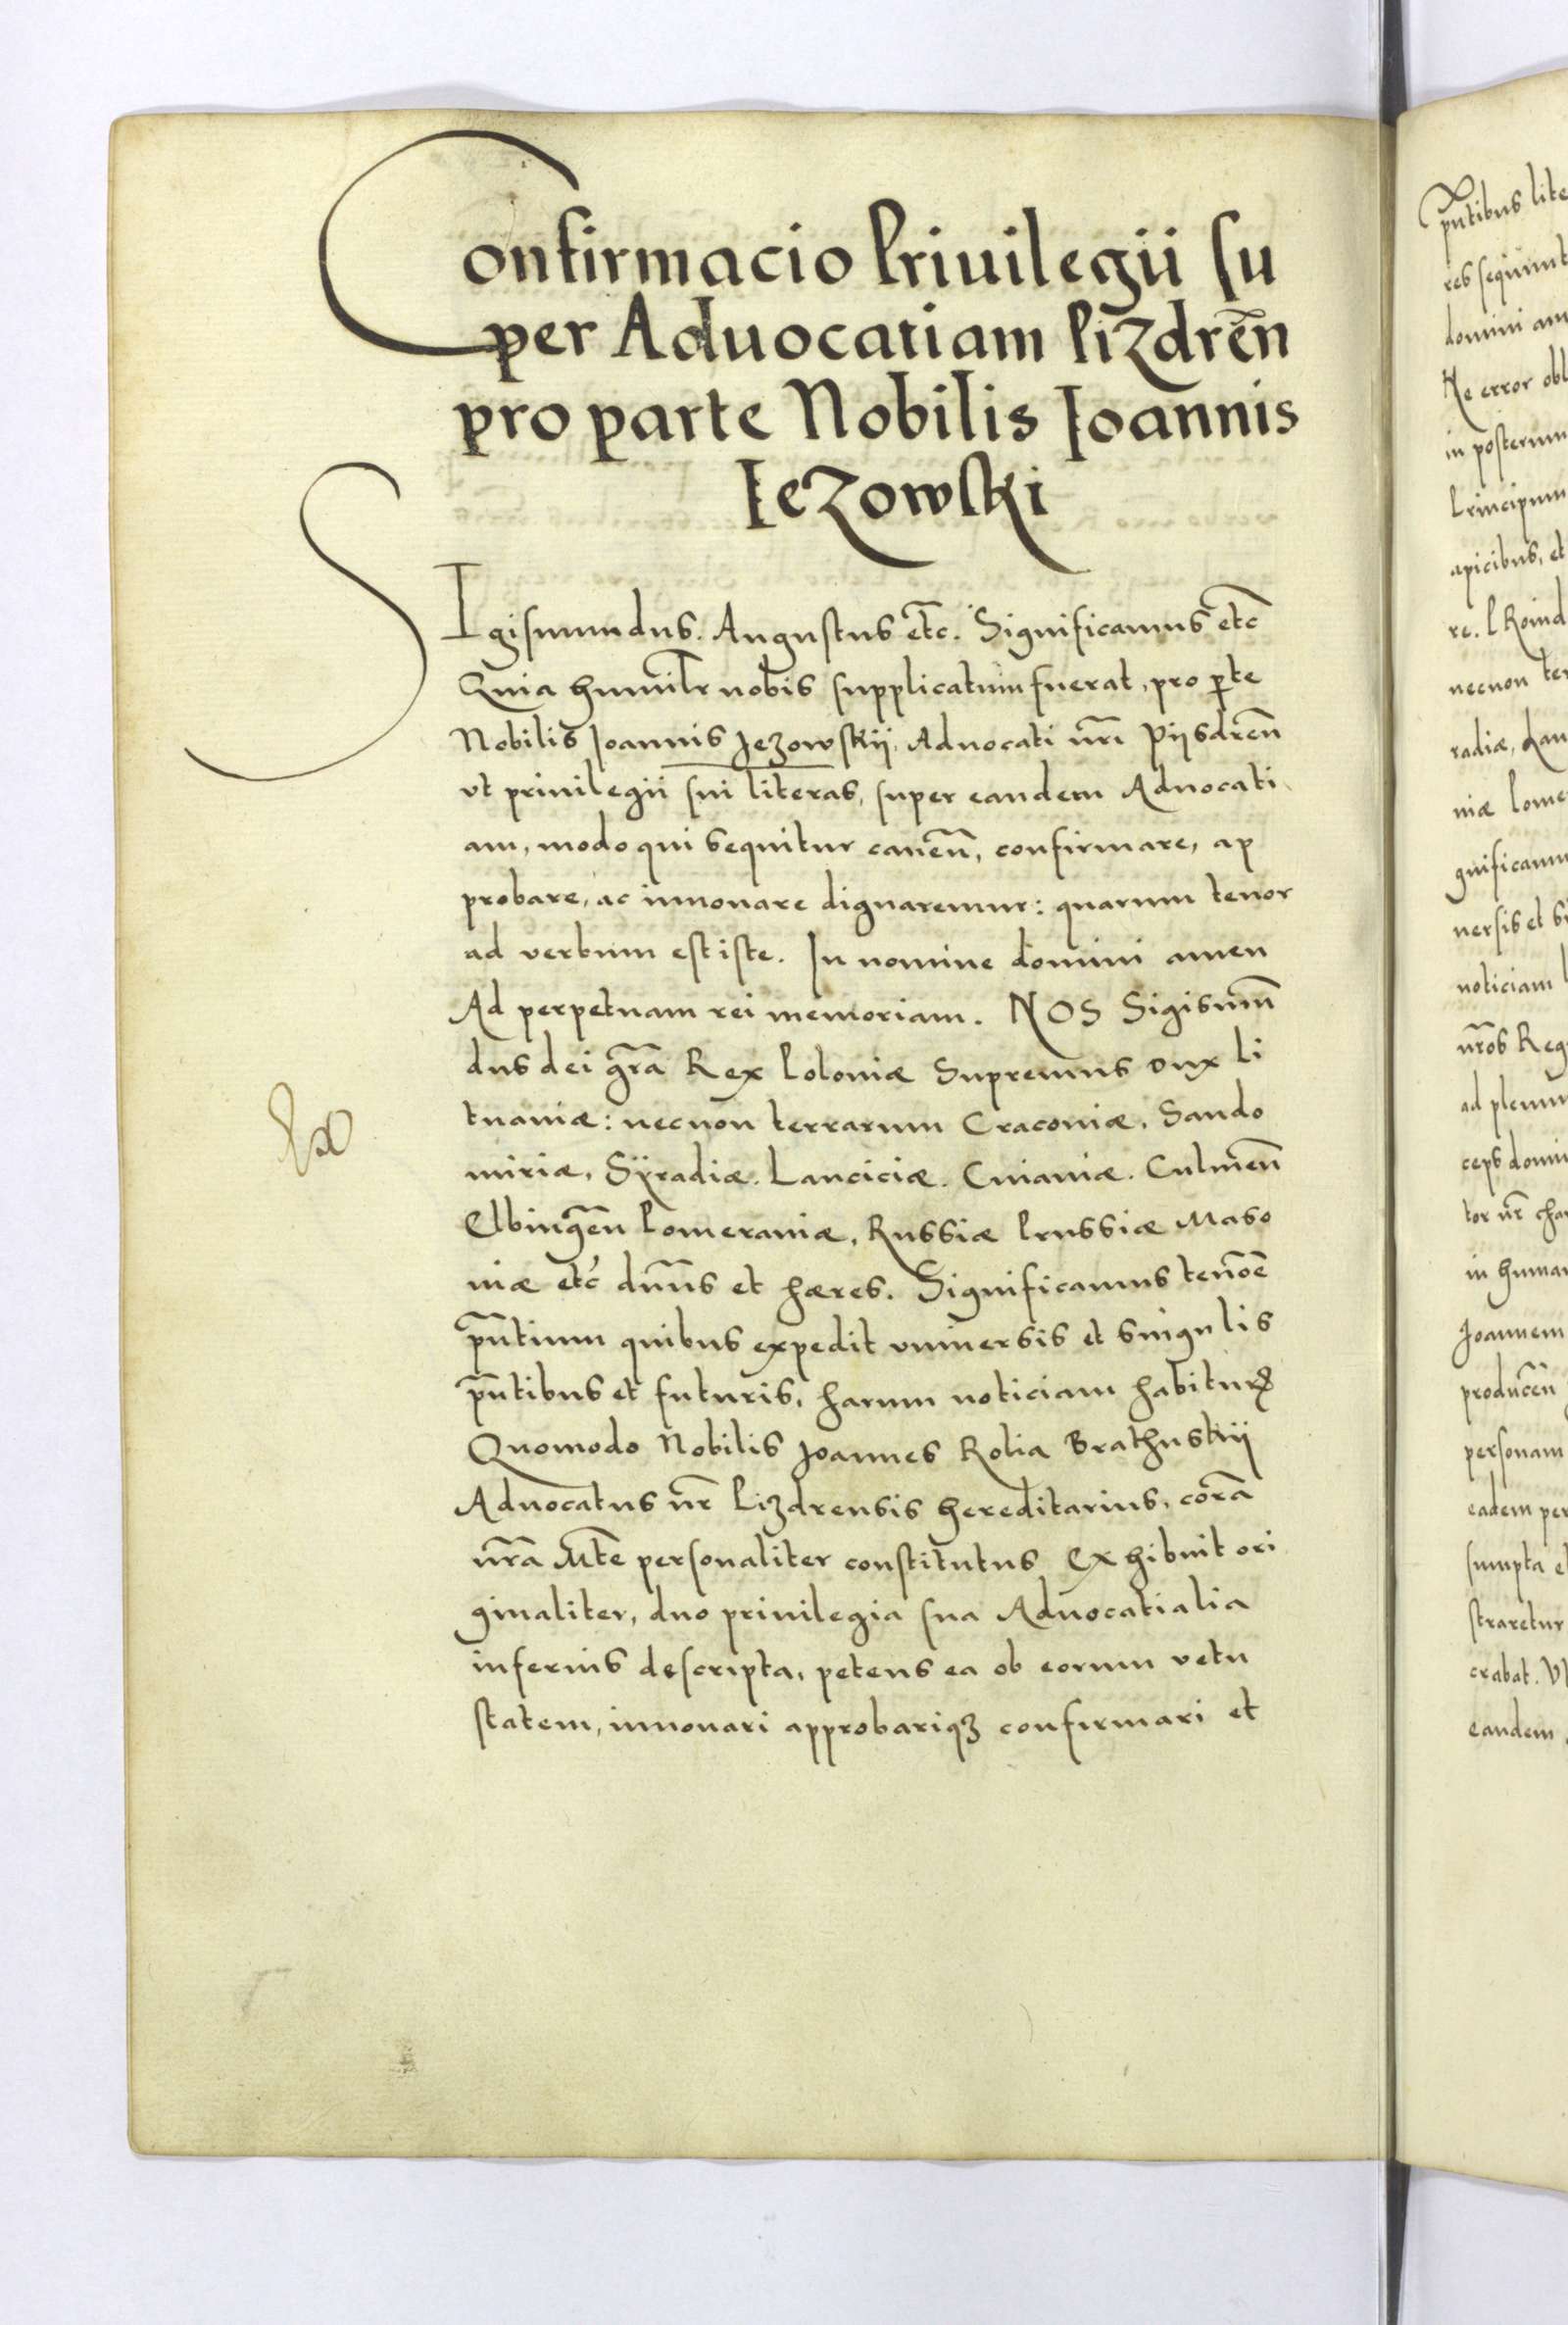 Confirmacio Priuilegii su
per Aduocatiam Pizdreñ
pro parte Nobilis Ioannis
Iezowski
SIgismundus. Augustus etc̃. Significamus etc̃
Quia humil̃r nobis supplicatum fuerat, pro ꝑte
Nobilis Joannis Jezowskij, Aduocati nr̃i Pijsdreñ
vt priuilegii sui literas, super eandem Aduocati
am, modo qui sequitur caueñ, confirmare, ap
probare, ac innouare dignaremur: quarum tenor
ad verbum est iste. In nomine domini amen
Ad perpetuam rei memoriam. NOS Sigismũn
dus dei gr̃a Rex Poloniæ Supremus Dux Li
tuaniæ: necnon terrarum Cracoviæ, Sando
miriæ, Sÿradiæ. Lanciciæ. Cuiauiæ. Culmeñ
Elbingeñ Pomeraniæ, Russiæ Prussiæ Maso
uiæ etc̃ dñns et hæres. Significamus tenõe
pñtium quibus expedit vniuersis et singulis
pñtibus et futuris, harum noticiam habituꝝ
Quomodo Nobilis Joannes Rolia Brathuskij
Aduocatus nr̃ Pizdrensis hereditarius, corã
nr̃a Mte personaliter constitutus Exhibuit ori
ginaliter, duo priuilegia sua Aduocatialia
inferius descripta, petens ea ob eorum vetu
statem, innouari approbariqꝫ confirmari et
pñtibus lite
res sequunt
domini am
Ne error obl
in posterum
Principum
apicibus, et
re. PRoind
necnon ter
radiæ, Lan
niæ Pome
gnificamu
uersis et si
noticiam
nr̃os Reg
ad plenum
ceps domin
tor nr̃ cha
in human
Joannem
produceñ
personam
eadem per
sumpta et
straretur
crabat. Vt
eandem